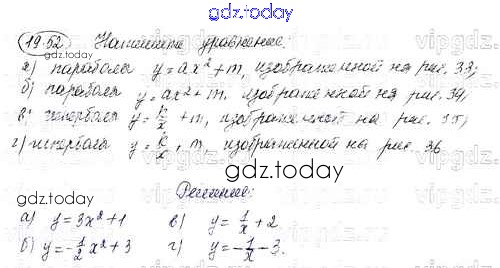 gdz.today
19.52. Напишите уравнение.
gdz.today
а) параболы y = ax² + m, изображенной на рис. 33;
б) параболы y = ax² + m, изображенной на рис. 34;
в) гиперболы y = k/x + m, изображенной на рис. 35;
г) гиперболы y = k/x, m, изображенной на рис. 36
gdz.today
gdz.today
Решение:
а) y = 3x² + 1 в) y = 1/x + 2
б) y = -1/2 x² + 3 г) y = -1/x - 3.
gdz.today